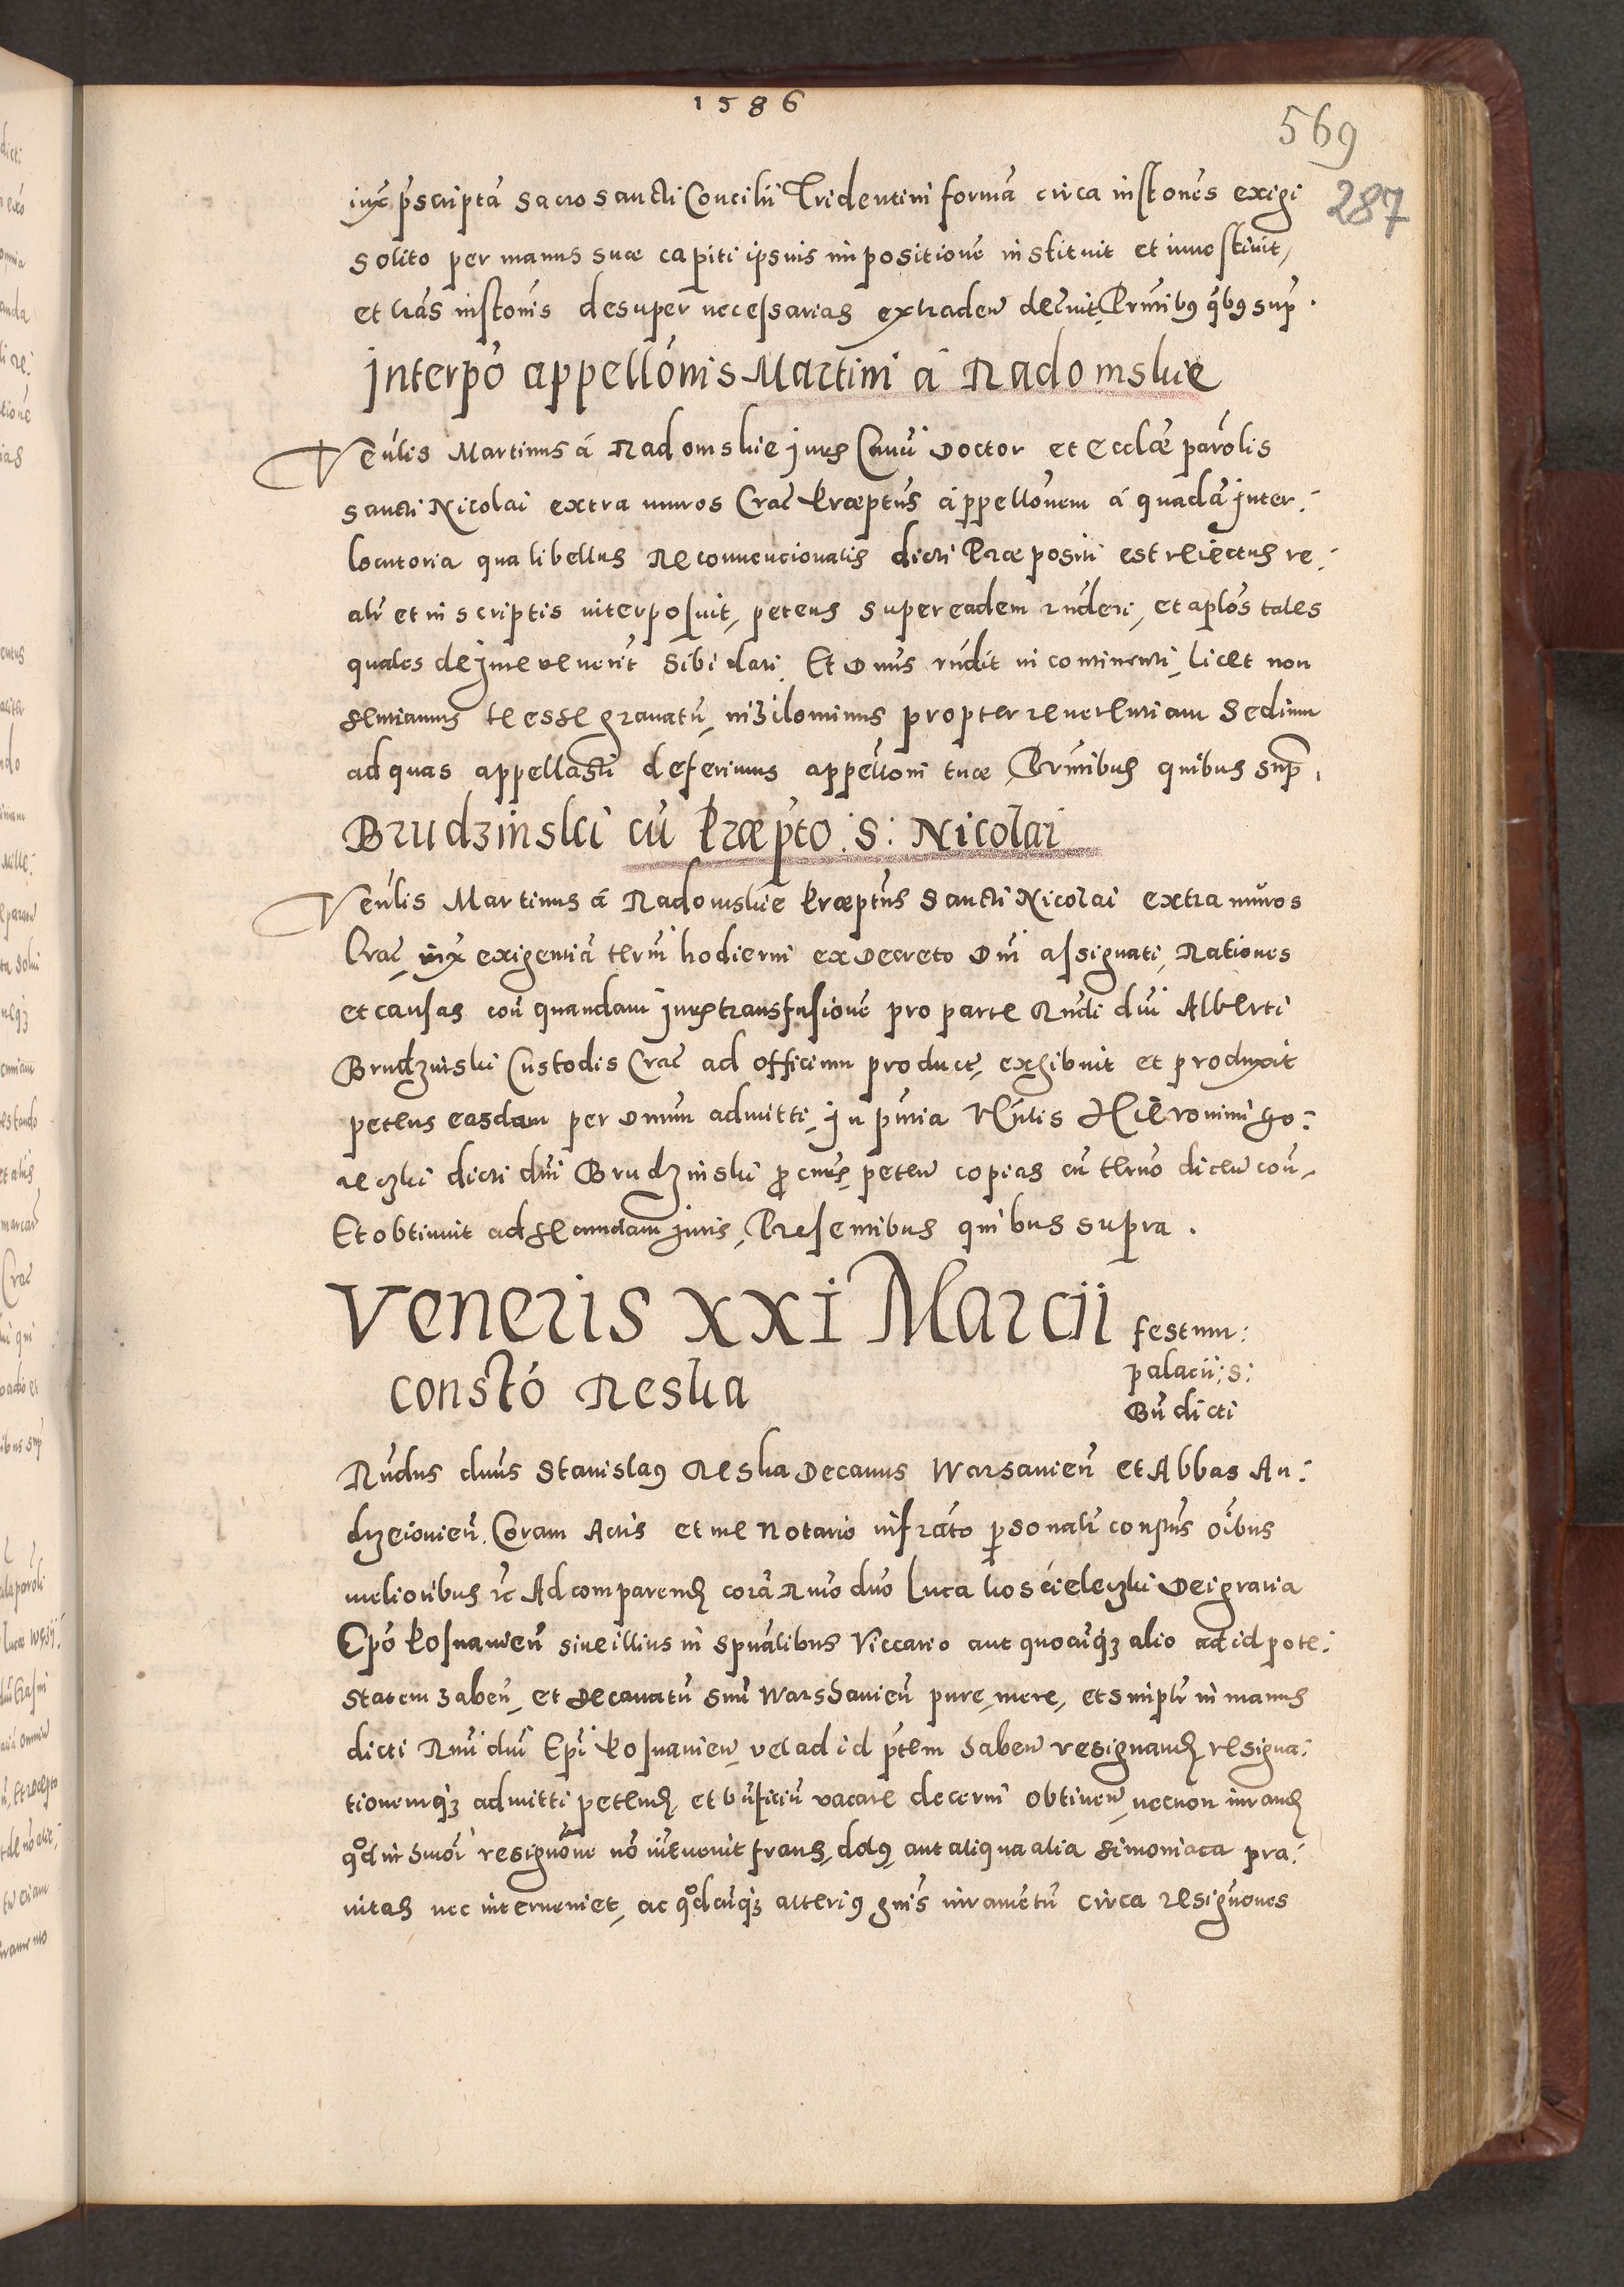 1586
569
287
iux p̃scriptã Sacrosancti Concilii Tridentini formã circa instones exigi
solito per manus suæ capiti ipsius impositionẽ instituit et inuestiuit,
et l̃ras inst̃onis desuper necessarias extraden̄ decreuit, Pr̃ntibus q̃bus sup̃.
Interpõ appellõnis Martini á Radomskie
Veñlis Martinus á Radomskie Juris Canõ Doctor et Ecclæ parõlis
sancti Nicolai extra muros Crac̃ Præptus appellõnem á quadã inter:
locutoria qua libellus Reconuencionalis dicti Præpositi est reiectus re:
alr̃ et in scriptis interposuit, petens super eadem rñderi, et aplõs tales
quales de jure uenerit sibi dari. Et Dñus rñdit in continenti, licet non
sentiamus te esse grauatũ, nihilominus propter reuerentiam Sedium
ad quas appellasti deferimus appellõni tuæ, Pr̃ntibus quibus sup̃.
Brudzinski cũ Præpto S: Nicolai
Veñlis Martinus á Radomskie Præptus Sancti Nicolai extra muros
Crac̃, iux exigentiã term̃i hodierni ex Decreto Dñi assignati, Rationes
et causas con̄ quandam juris transfusionẽ pro parte Rñdi dñi Alberti
Brudzinski Custodis Crac̃ ad officium product̃, exhibuit et produxit
petens easdam per Dñum admitti, in pñtia Nõlis Hieronimi Go:
reczki dicti dñi Brudzinski procuris, peten̄ copias cũ term̃o dicen̄ con̄,
Et obtinuit ad secundam juris, Presentibus quibus supra.
Veneris XXI Marcii festum:
palacii: S:
Bñdicti
Constõ Reska
Rñdus dñus Stanislaus Reska Decanus Warsauien̄ et Abbas An:
drzeiouien̄. Coram Actis et me Notario infrãto personalr̃ conpñs oĩbus
melioribus etc Ad comparend̃ corã Rm̃o dño Luca Koscieleczki Dei gratia
Epõ Posnanien̄ siue illius in spũalibus Viccario aut quocũq̃ alio ad id pote:
statem haben̄, et Decanatũ suũ Warshauien̄ pure, mere, et simplr̃ in manus
dicti Rm̃i dñi Epĩ Posnanien̄, vel ad id p̃tem haben̄ resignand̃ resigna:
tionemq̃ admitti petend̃, et bñficiũ vacare decerni obtinen̄, necnon iurand̃
q̃d in hmõi resignõne nõ interuenit fraus, dolus, aut aliqua alia simoniaca pra:
uitas nec interueniet, ac q̃dcũq̃ alterius gñis iuramentũ circa resignõnes